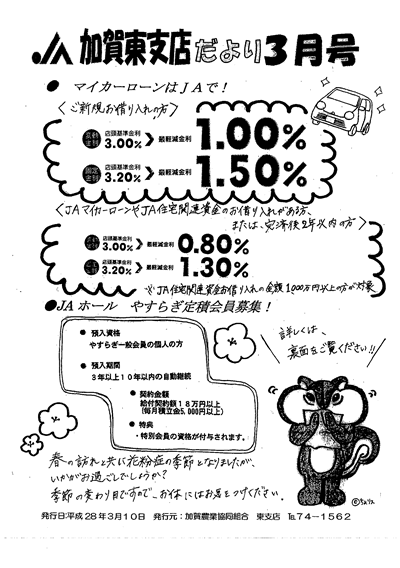 JA 加賀東支店だより3月号
● マイカーローンはJAで！
〈ご新規お借り入れの方〉
変動金利 店頭基準金利 3.00% 最軽減金利 1.00%
固定金利 店頭基準金利 3.20% 最軽減金利 1.50%
〈JAマイカーローンやJA住宅関連資金のお借り入れがある方、
または、完済後2年以内の方〉
店頭基準金利 3.00% 最軽減金利 0.80%
店頭基準金利 3.20% 最軽減金利 1.30%
※JA住宅関連資金お借り入れの金額1,000万円以上の方が対象
●JAホール やすらぎ定積会員募集！
● 預入資格
やすらぎ一般会員の個人の方
● 預入期間
3年以上10年以内の自動継続
● 契約金額
給付契約額18万円以上
(毎月積立金5,000円以上)
● 特典
・特別会員の資格が付与されます。
詳しくは、
裏面をご覧ください!!
春の訪れと共に花粉症の季節となりましたが、
いかがお過ごしでしょうか？
季節の変わり目ですので、お体にはお気をつけください。
©ちょリス
発行日:平成28年3月10日 発行元：加賀農業協同組合 東支店 ℡74-1562